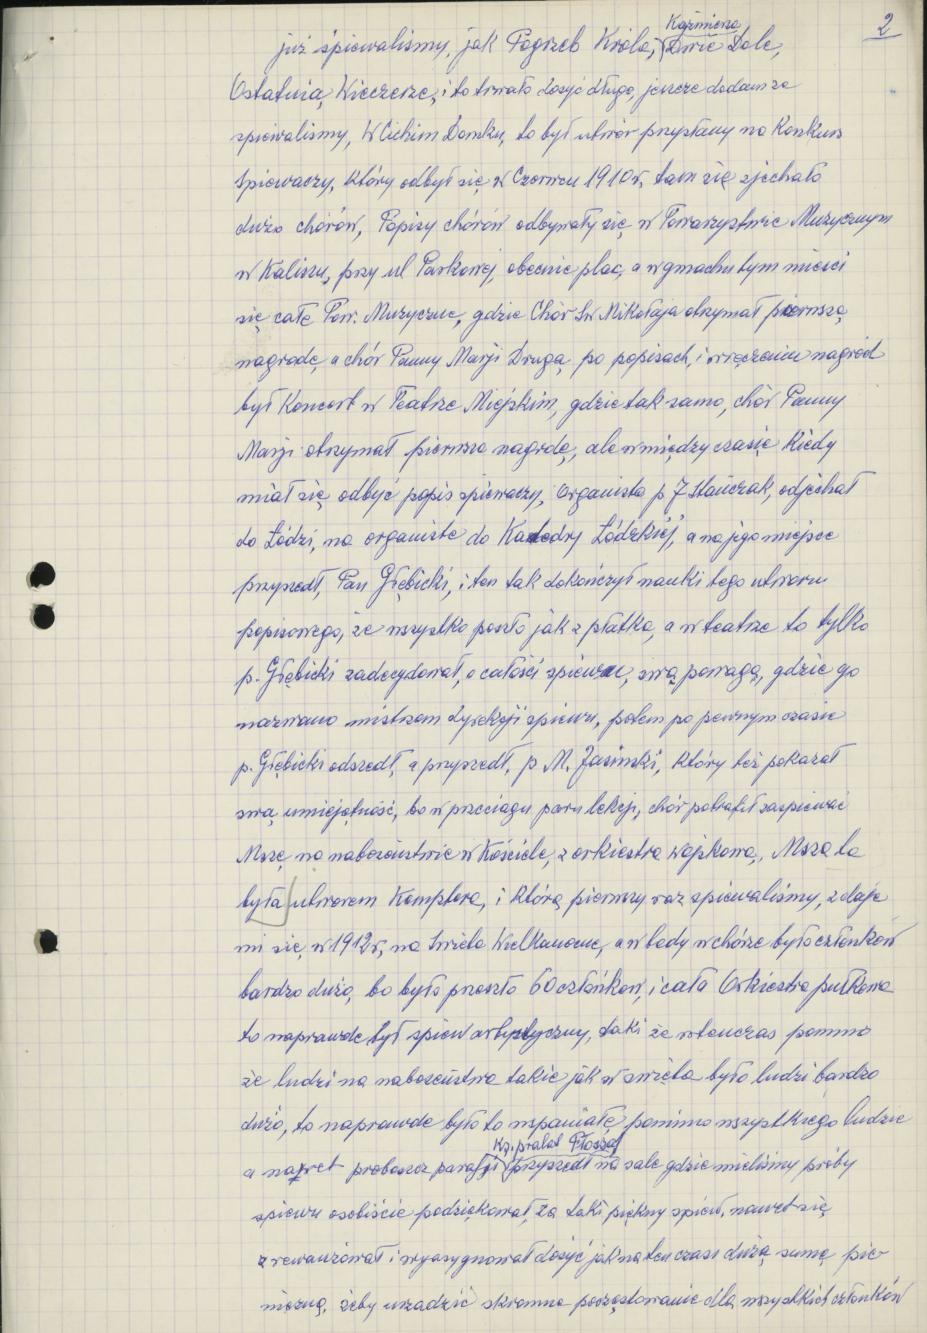 2
Kaźmierza
już śpiewaliśmy, jak Pogrzeb Króla, Dwie Dole,
Ostatnią Wieczerzę, i to trwało dosyć długo, jeszcze dodam że
śpiewaliśmy, W Cichym Domku, to był utwór przysłany na Konkurs
Śpiewaczy, który odbył się w Czerwcu 1910 r, tam się zjechało
dużo chórów, Popisy chórów odbywały się w Towarzystwie Muzycznym
w Kaliszu, przy ul Parkowej, obecnie plac, a w gmachu tym mieści
się całe Tow. Muzyczne, gdzie Chór Św Mikołaja otrzymał pierwszą
nagrodę, a chór Panny Marji Drugą, po popisach, i wręczeniu nagród
był Koncert w Teatrze Miejskim, gdzie tak samo, chór Panny
Marji otrzymał pierwszą nagrodę, ale w między czasie kiedy
miał się odbyć popis śpiewaczy, organista p. J Stańczak, odjechał
do Łodzi, na organistę do Katedry Łódzkiej, a na jego miejsce
przyszedł, Pan Głębicki, i ten tak dokończył nauki tego utworu
popisowego, że wszystko poszło jak z płatka, a w teatrze to tylko
p. Głębicki zadecydował, o całości śpiewu, swą powagą, gdzie go
nazwano mistrzem dyrekcji śpiewu, potem po pewnym czasie
p. Głębicki odszedł, a przyszedł, p M. Jasiński, który też pokazał
swą umiejętność, bo w przeciągu paru lekcji, chór potrafił zaśpiewać
Mszę na nabożeństwie w Kościele, z orkiestrą wojskową, Msza ta
była utworem Kemptera, i którą pierwszy raz śpiewaliśmy, zdaje
mi się, w 1912 r, na Święta Wielkanocne, a wtedy w chórze było członków
bardzo dużo, bo było przeszło 60 członków, i cała Orkiestra pułkowa
to naprawdę był śpiew artystyczny, taki że wtenczas pomimo
że ludzi na nabożeństwa takie jak w święta było ludzi bardzo
dużo, to naprawdę było to wspaniałe, pomimo wszystkiego ludzie
Ks. prałat Płoszaj
a nawet proboszcz parafji przyszedł na salę gdzie mieliśmy próby
śpiewu osobiście podziękował, za taki piękny śpiew, nawet się
zrewanżował i wyasygnował dosyć jak na ten czas dużą sumę pie-
niężną, żeby urządzić skromne poczęstowanie dla wszystkich członków